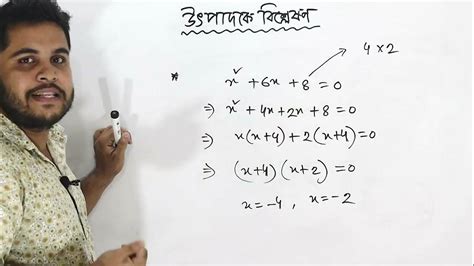 উৎপাদকে বিশ্লেষণ
4 × 2
* x² + 6x + 8 = 0
⇒ x² + 4x + 2x + 8 = 0
⇒ x(x+4) + 2(x+4) = 0
⇒ (x+4) (x+2) = 0
x = -4 , x = -2